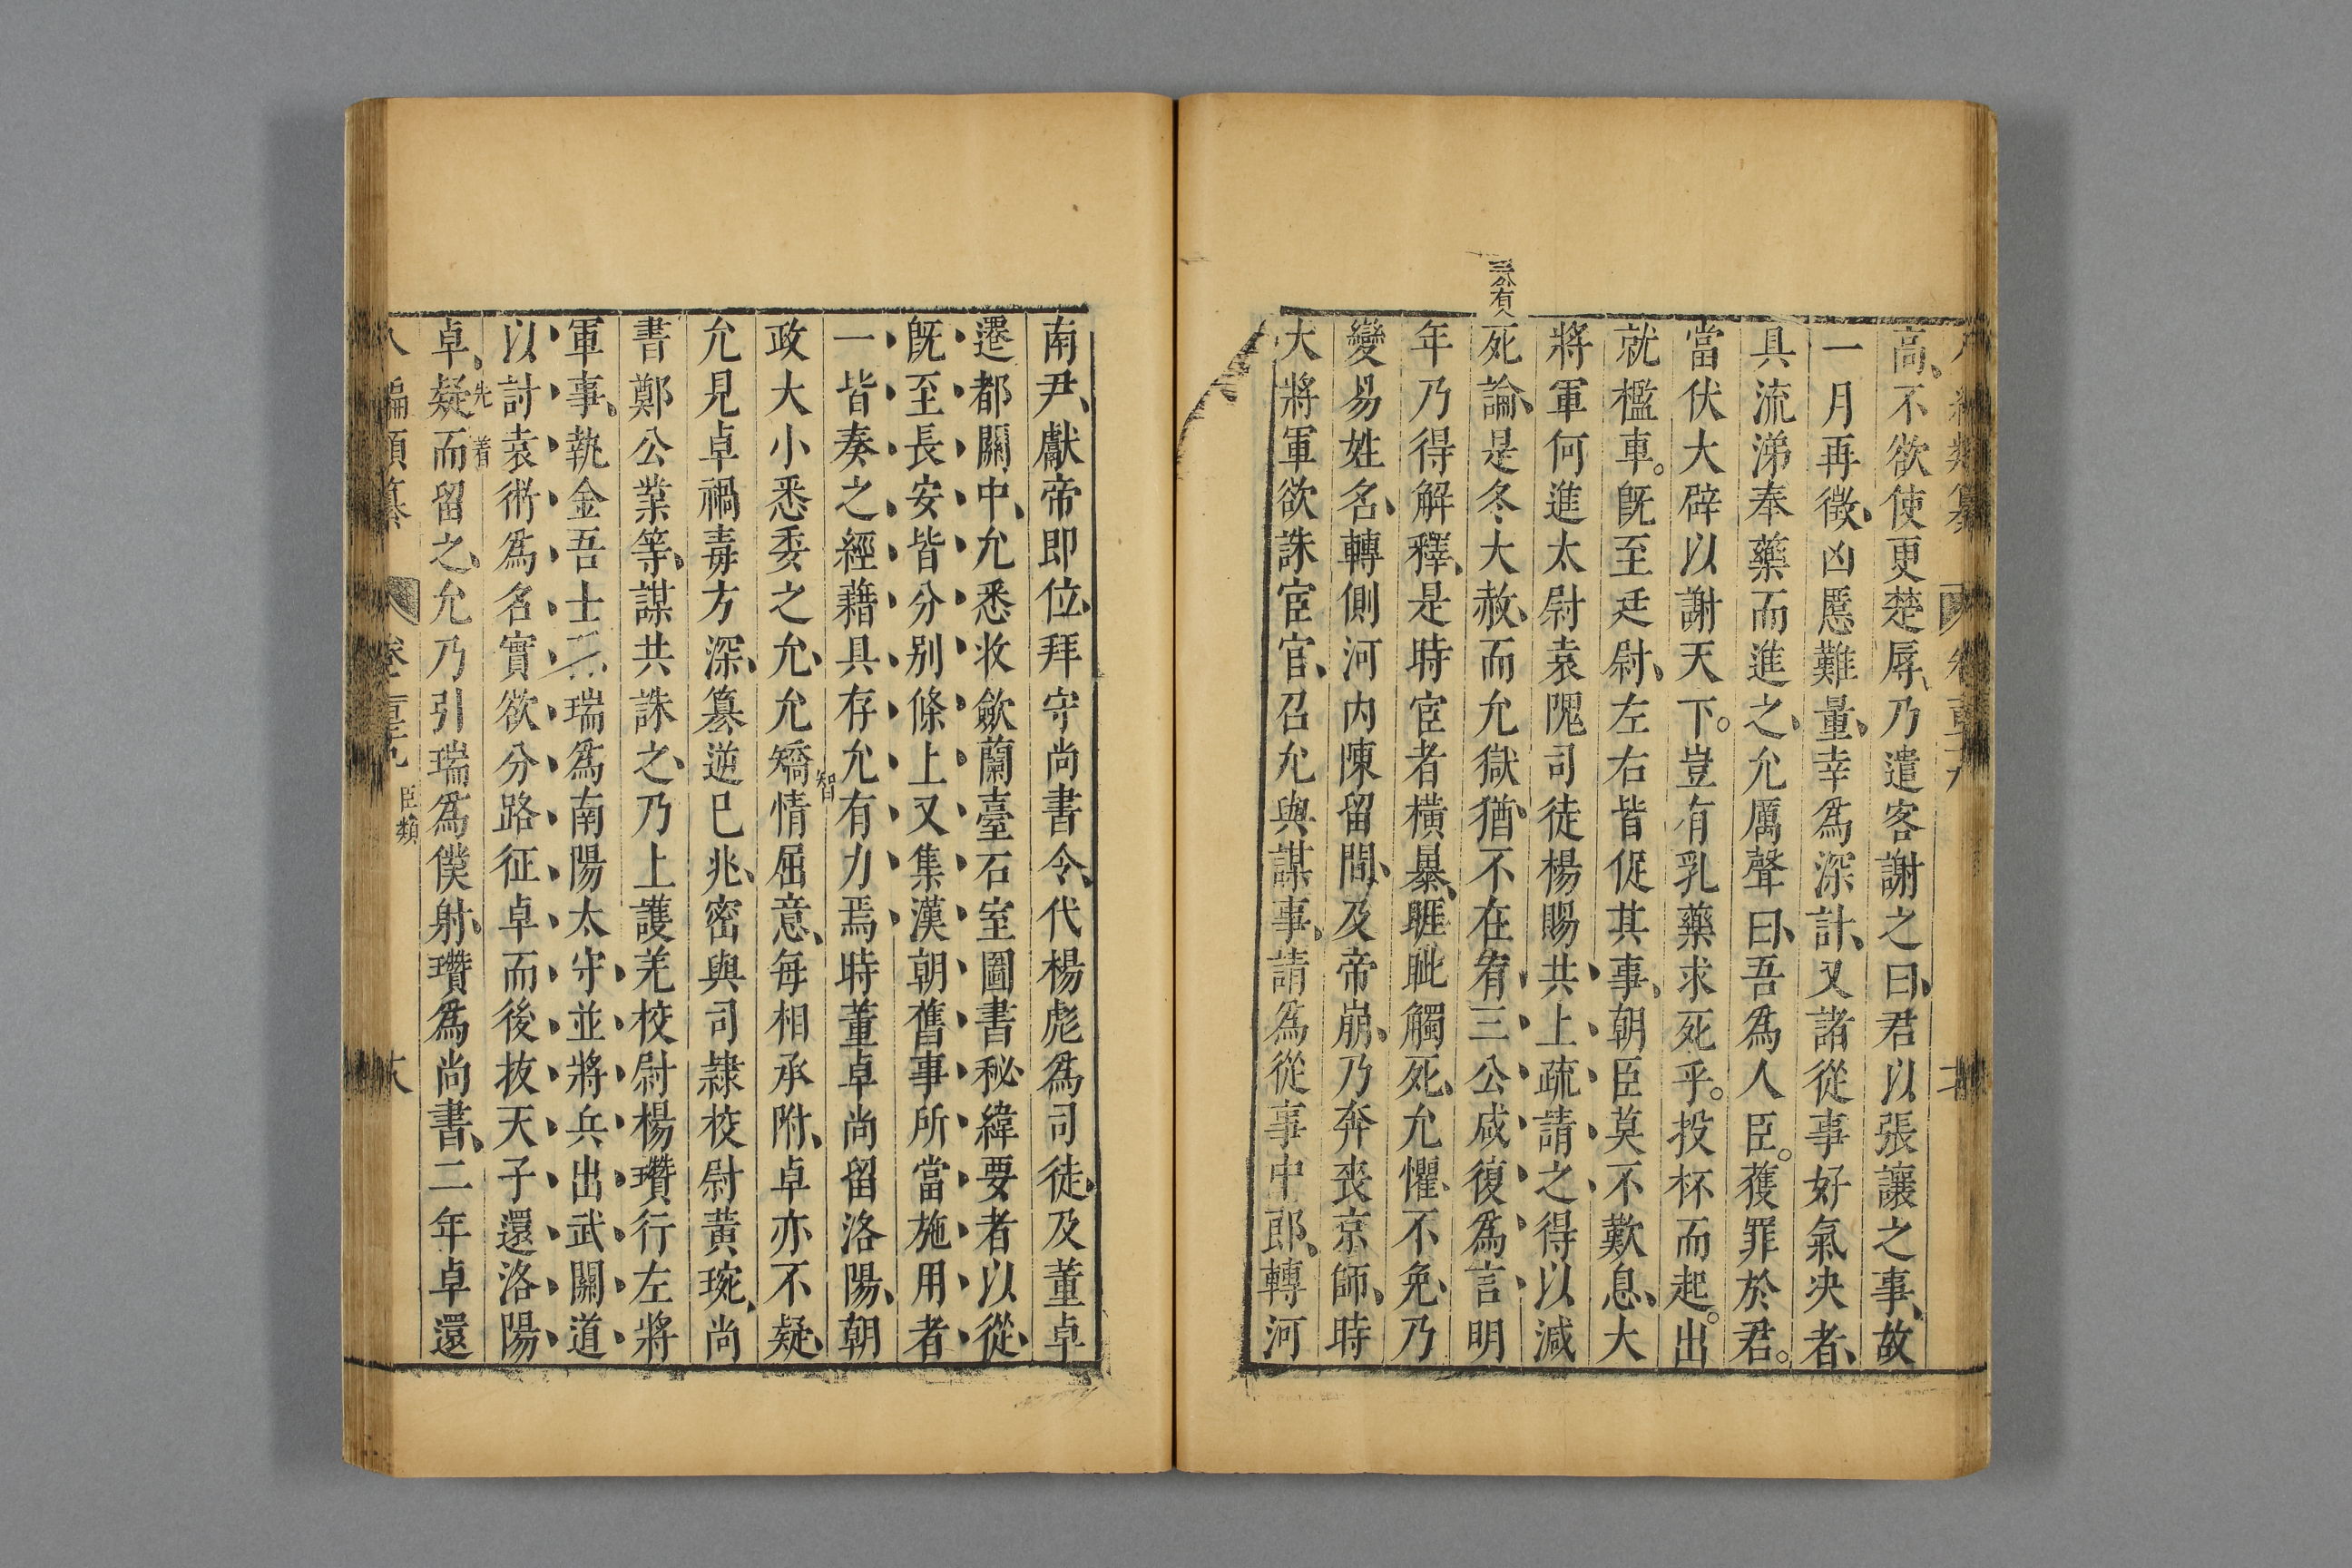 高、不欲使更楚辱、乃遣客謝之曰、君以張讓之事、故
一月再徵、凶慝難量、幸爲深計、又諸從事好氣决者、
具流涕奉藥而進之、允厲聲曰、吾爲人臣。獲罪於君。
當伏大辟以謝天下。豈有乳藥求死乎。投杯而起。出
就檻車。旣至廷尉、左右皆促其事、朝臣莫不歎息、大
將軍何進太尉袁隗司徒楊賜共上疏請之、得以減
死論、是冬大赦、而允獄猶不在宥、三公咸復爲言明
年乃得解釋、是時宦者橫暴、睚眦觸死、允懼、不免、乃
變易姓名、轉側河内陳留間、及帝崩、乃奔喪京師、時
大將軍欲誅宦官、召允與謀事、請爲從事中郎、轉河
南尹、獻帝即位、拜守尚書令、代楊彪爲司徒、及董卓
遷都關中、允悉收歛蘭臺石室圖書秘緯要者以從、
旣至長安皆分别條上又集漢朝舊事所當施用者
一皆奏之經藉具存允有力焉時董卓尚留洛陽、朝
政大小悉委之允、允矯情屈意、每相承附、卓亦不疑、
智
允見卓禍毒方深、簒逆已兆、密與司隷校尉黃琬、尚
書鄭公業等、謀共誅之、乃上護羌校尉楊瓚行左將
軍事、執金吾士孫瑞爲南陽太守並將兵出武關道
以討袁術爲名實欲分路征卓而後拔天子還洛陽
先着
卓、疑而留之、允乃引瑞爲僕射、瓚爲尚書、二年卓還
編類纂 臣類